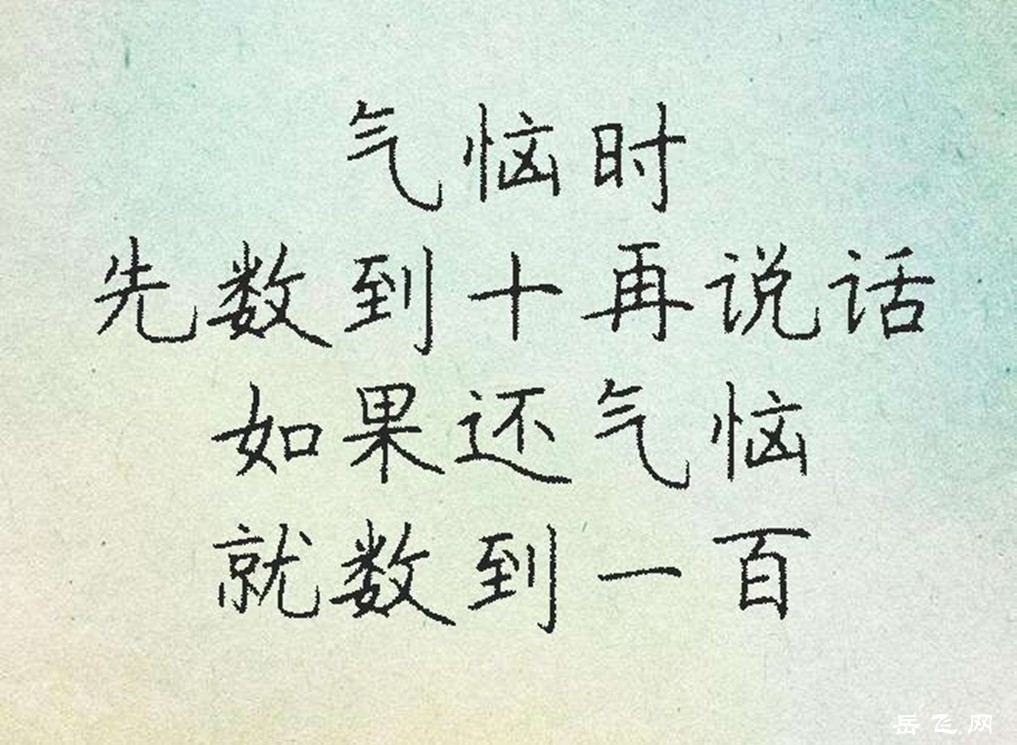 气恼时
先数到十再说话
如果还气恼
就数到一百
岳飞网